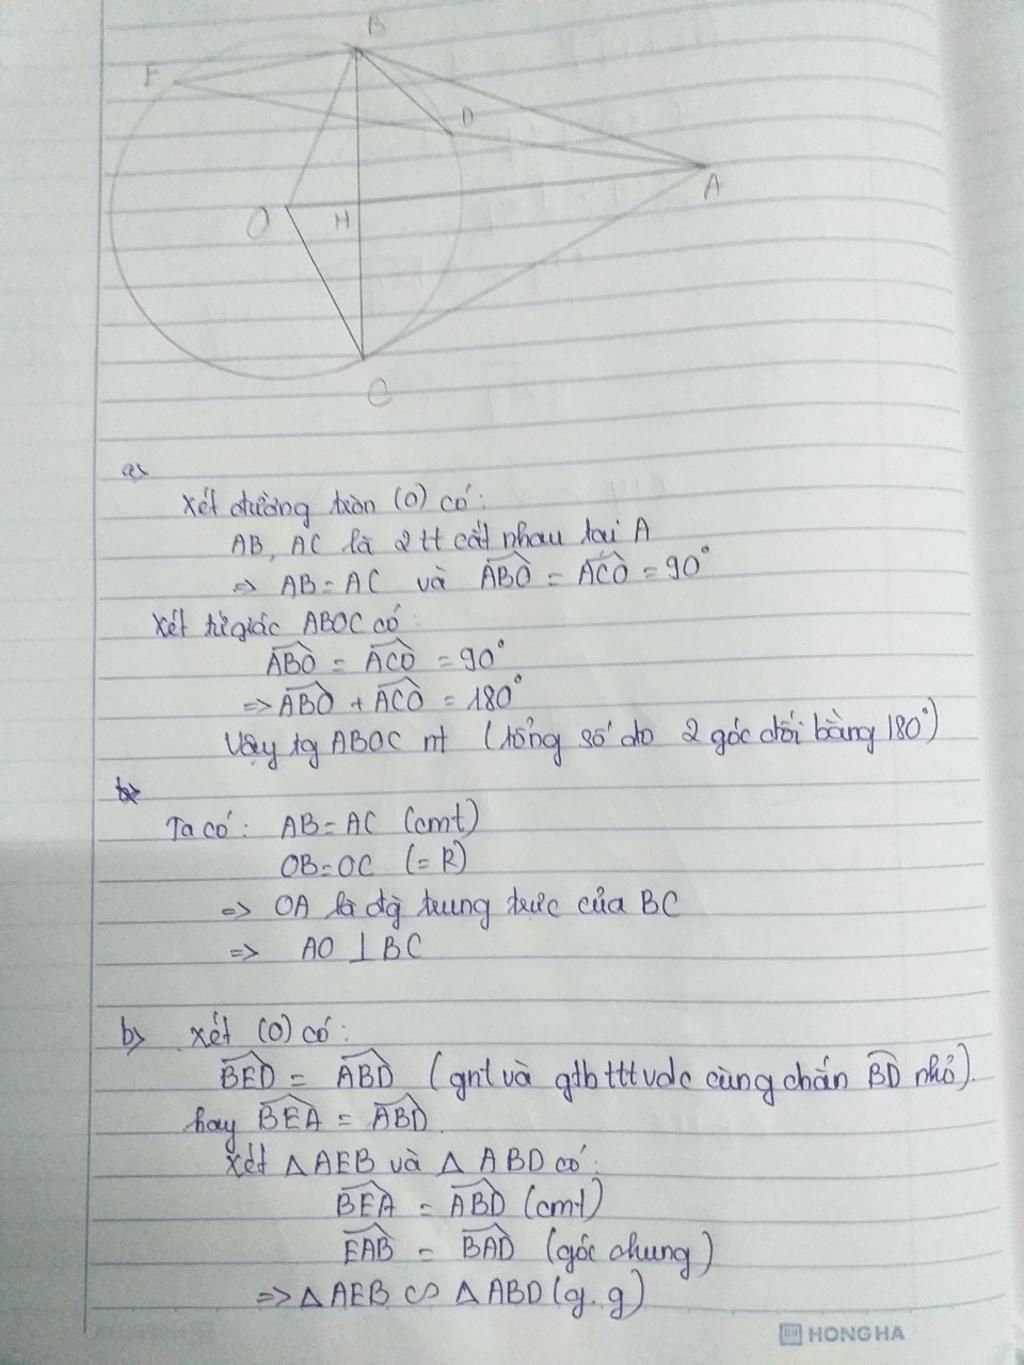 B
E
D
A
O
H
C
a>
Xét đường tròn (O) có:
AB, AC là 2 tt cắt nhau tại A
=> AB = AC và ABO = ACO = 90°
Xét tứ giác ABOC có:
ABO = ACO = 90°
=> ABO + ACO = 180°
Vậy tg ABOC nt (tổng số đo 2 góc đối bằng 180°)
Ta có: AB = AC (cmt)
OB = OC (= R)
=> OA là đg trung trực của BC
=> AO ⊥ BC
b> Xét (O) có:
BED = ABD (gnt và gtb tttvdc cùng chắn BD nhỏ).
hay BEA = ABD.
Xét △ AEB và △ ABD có:
BEA = ABD (cmt)
EAB = BAD (góc chung)
=> △ AEB ∽ △ ABD (g.g)
HONG HA